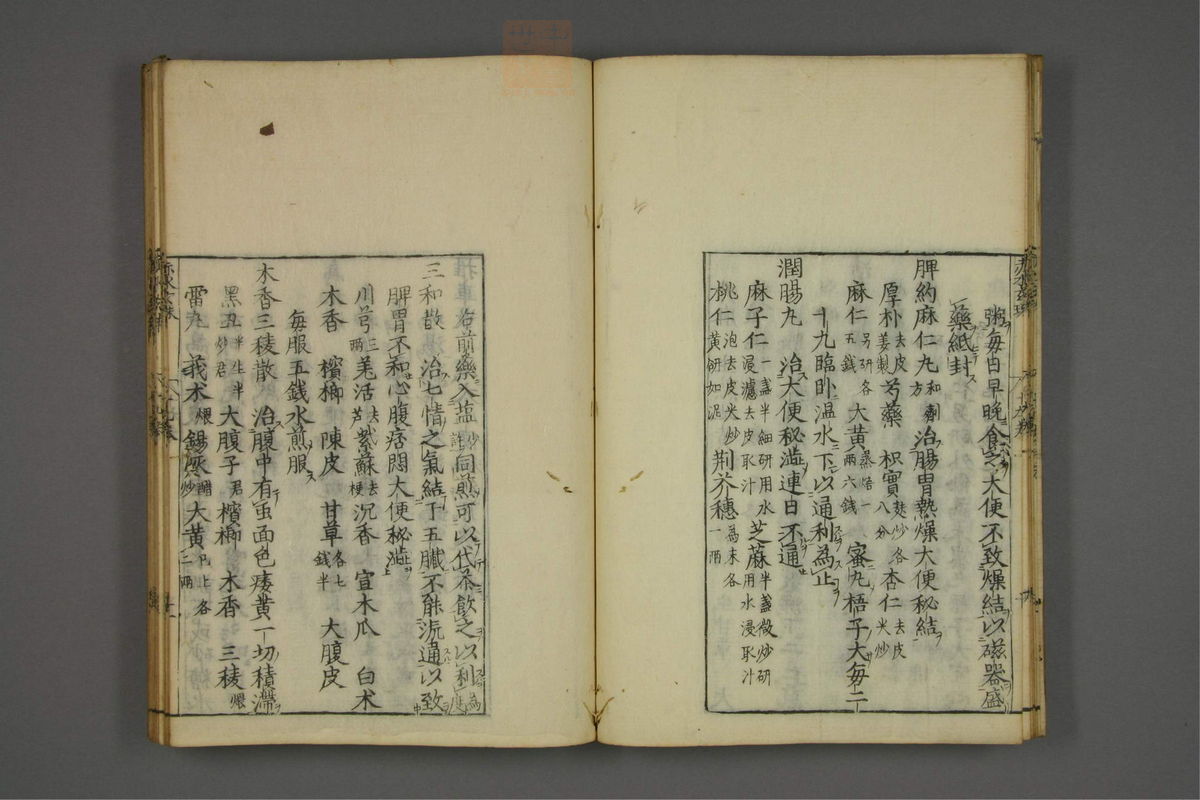 粥毎日早晩食之大便不致燥結以磁器盛
藥紙封
脾約麻仁丸和劑方治腸胃熱燥大便秘結
厚朴去皮姜製芍藥枳實麩炒各八分杏仁去皮米炒
麻仁另研各五錢大黄蒸焙一兩六錢蜜丸梧子大毎二
十丸臨卧温水下以通利為止
潤腸丸治大便秘澁連日不通
麻子仁一盞半細研用水浸濾去皮取汁芝蔴半盞微炒研用水浸取汁
桃仁泡去皮米炒黄研如泥荆芥穗為末各一兩
右前藥入塩少許同煎可以代茶飲之以利為度
三和散治七情之氣結于五臟不能流通以致
脾胃不和心腹痞悶大便秘澁
川芎三兩羗活去芦紫蘇去梗沉香宣木瓜白术
木香檳榔陳皮甘草各七錢半大腹皮
毎服五錢水煎服
木香三稜散治腹中有䖝面色痿黄一切積滯
黑丑半生半炒君大腹子君檳榔木香三稜煨
雷丸莪术煨錫灰醋炒大黄已上各三兩